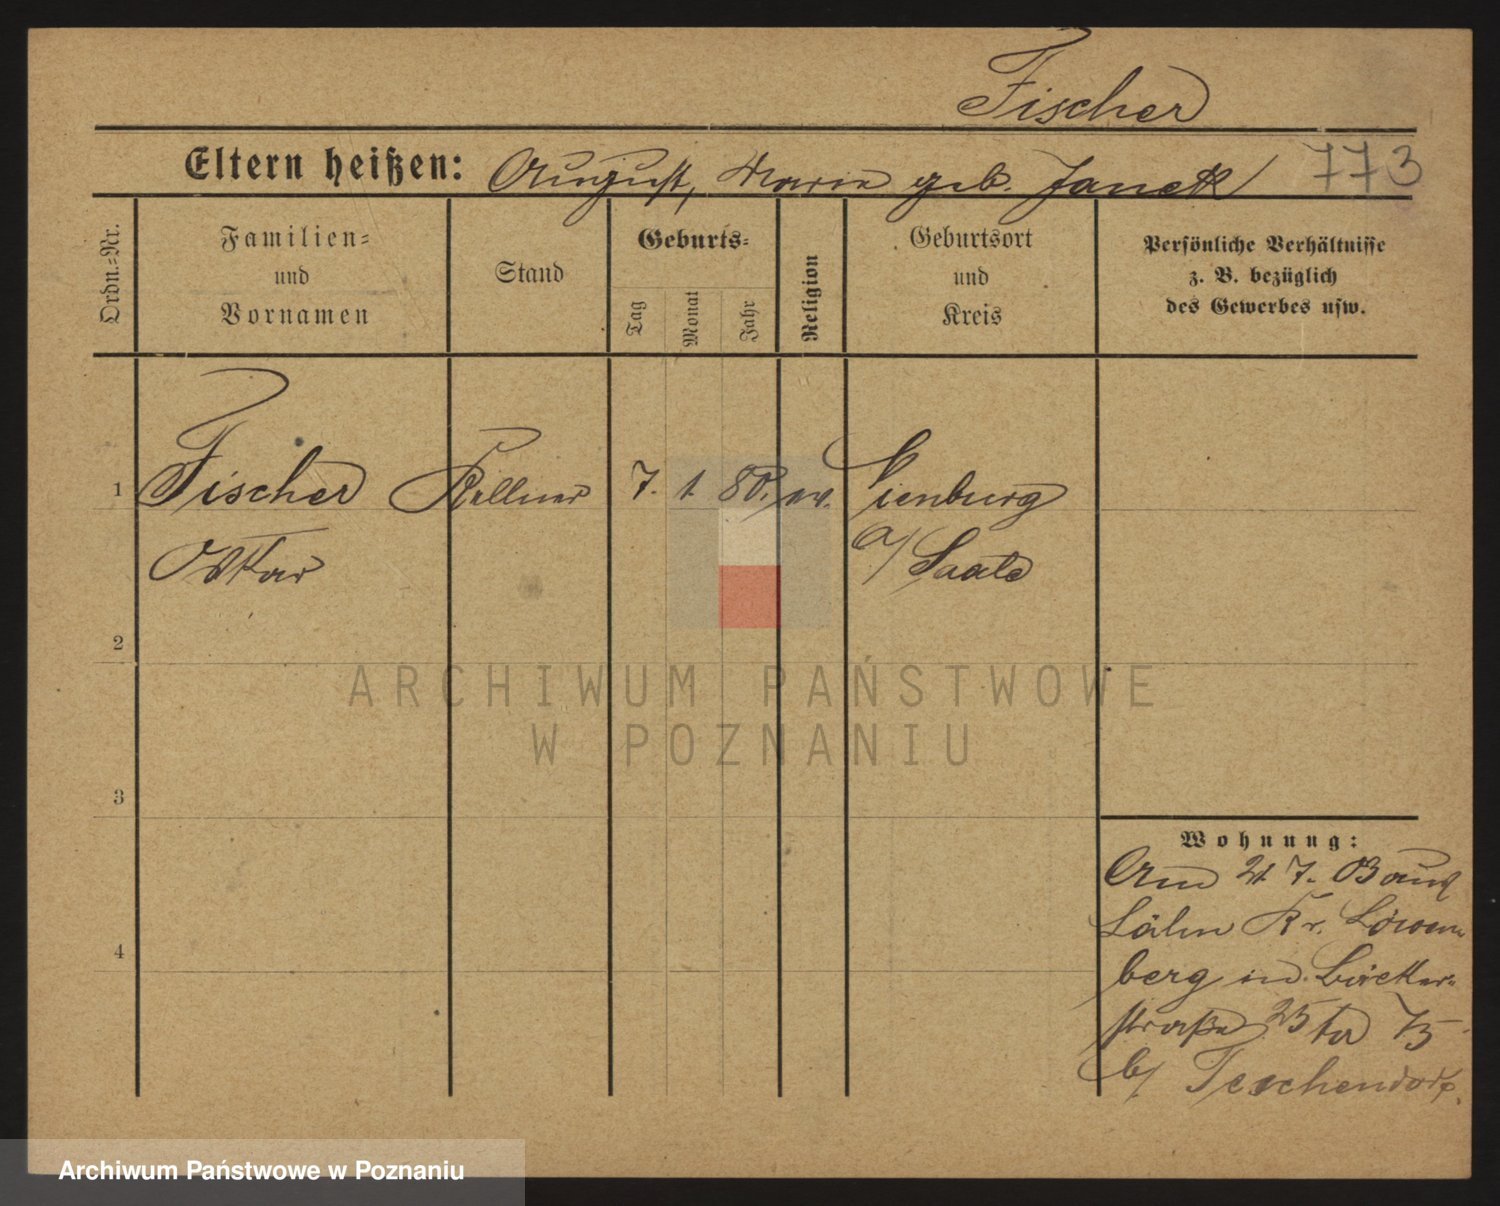 Fischer
Eltern heißen: August, Marie geb. Janek 773
Ordn.=Nr.
Familien=
und
Vornamen
Stand
Geburts=
Tag
Monat
Jahr
Religion
Geburtsort
und
Kreis
Persönliche Verhältnisse
z. B. bezüglich
des Gewerbes usw.
1 Fischer Kellner 7. 1. 80. ev. Nienburg
Oskar a/ Saale
2
3
4
Wohnung:
Am 21. 7. 03 aus
Lähn Kr. Löwen-
berg in Bäcker-
straße 25 ta 75
b/ Teschendorf.
ARCHIWUM PAŃSTWOWE
W POZNANIU
Archiwum Państwowe w Poznaniu